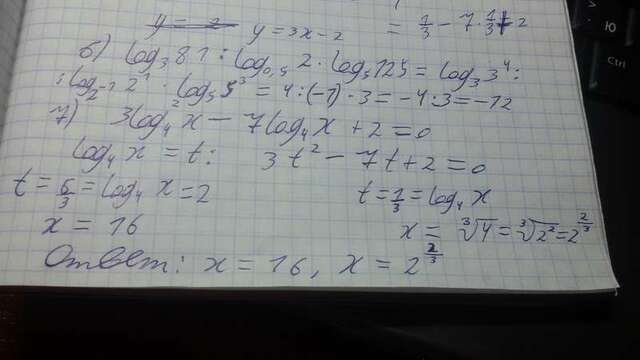 y = 2 y = 3x - 2 = 1/3 - 7 · 1/3 + 2
б) log₃81 : log₀,₅ 2 · log₅125 = log₃3⁴ :
: log₂₋₁ 2¹ · log₅5³ = 4 : (-1) · 3 = -4 · 3 = -12
7) 3log₄²x - 7log₄x + 2 = 0
log₄x = t : 3t² - 7t + 2 = 0
t = 6/3 = log₄ x = 2 t = 1/3 = log₄x
x = 16 x = ∛4 = ∛2² = 2^(2/3)
Ответ: x = 16, x = 2^(2/3)